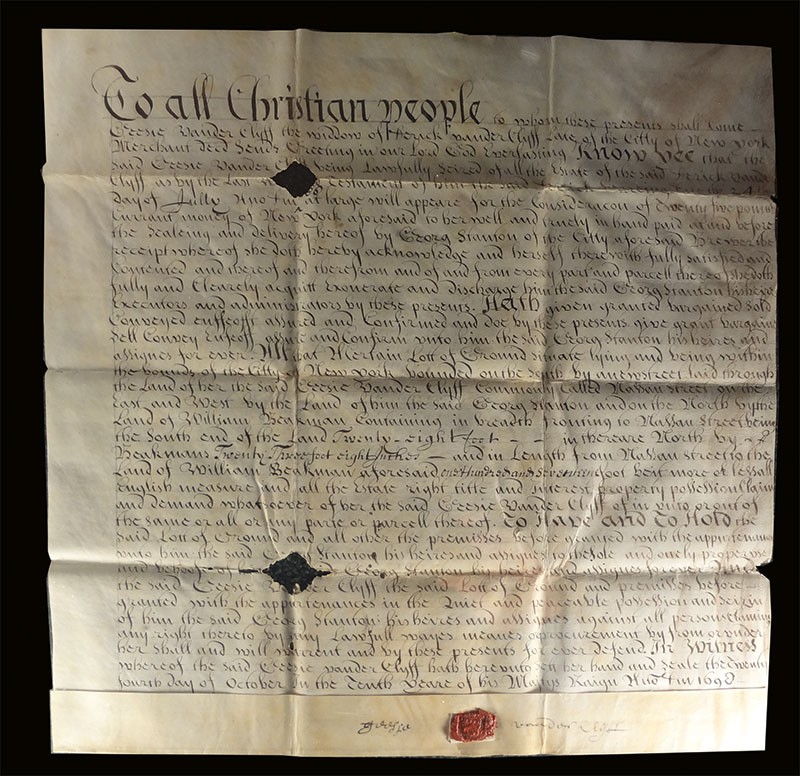 To all Christian people to whom these presents shall Come
Geesie Vander Clyff the widdow of Herick vander Clyff Late of the Citty of New york
Merchant decd Sends Greeting in our Lord God Everlasting Know yee that the
said Geesie Vander Cl being Lawfully Seized of all the Estate of the said Herick Vande
Clyff as by the Last testament of him the said
day of Jully at large will appeare for the Consideracon of Twenty five pound
Currant money of New york aforesaid to her well and truely in hand paid at and before
the Sealeing and delivery hereof by Georg Stanton of the Citty aforesaid Brewer the
receipt whereof she doth hereby acknowledge and herself therewith fully satisfied and
Contented and thereof and therefrom and of and from every part and parcell thereof she doth
fully and Clearely acquitt Exonerate and discharge him the said Georg Stanton his heires
Executors and administrators by these presents. Hath given granted bargained sold
Conveyed enffeofft assured and Confirmed and doe by these presents give grant bargaine
Sell Convey Enfeoff assure and Confirm unto him the said Georg Stanton his heires and
assignes for ever. All that Certain Lott of Ground situate lying and being within
the bounds of the Citty of New york bounded on the South by a new street laid through
the Land of her the said Geesie Vander Clyff Commonly Called Nassau Street on the
East and West by the Land of him the said Georg Stanton and on the North by the
Land of William Beakman Containing in breadth fronting to Nassau Street being
the South end of the Land Twenty-eight feet - - in the reare North by
Beakmans Twenty Three foot eight Inches - and in Length from Nassau street to the
Land of William Beakman aforesaid one Hundred and seventeen foot be it more or less all
English measure and all the Estate right title and Interest property possession Claim
and demand whatsoever of her the said Geesie Vander Clyff of in unto or out of
the same or all or any parte or parcell thereof. To Have and To Hold the
said Lott of Ground and all other the premisses before granted with the appurtenances
unto him the said G Stanton his heires and assignes to the sole and onely proper use
and behoofe of Georg Stanton his heires assignes for ever And
the said Geesie Vander Clyff the said Lott of Ground and premisses before
granted with the appurtenances in the Quiet and peaceable possession and seizin
of him the said Georg Stanton his heires and assignes against all persons Claiming
any right thereto by any Lawfull wayes meanes or procurement by from or under
her shall and will warrent and by these presents for ever defend. In Witness
whereof the said Geesie vander Clyff hath hereunto set her hand and seale the Twenty
fourth day of October In the Tenth Yeare of his Majtys Raign 1698
geesje vander Clyff